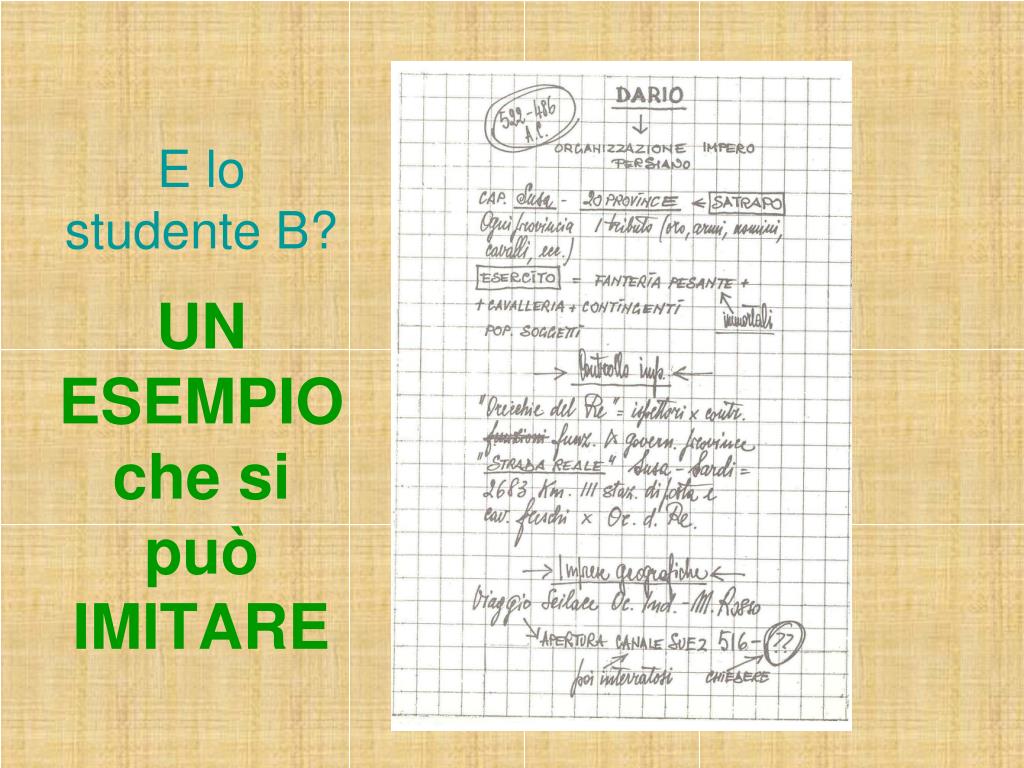 E lo
studente B?
UN
ESEMPIO
che si
può
IMITARE
522-486
A.C.
DARIO
ORGANIZZAZIONE IMPERO
PERSIANO
CAP. Susa - 20 PROVINCE ← SATRAPO
Ogni provincia 1 tributo (oro, armi, uomini,
cavalli, ecc.)
ESERCITO = FANTERIA PESANTE +
+ CAVALLERIA + CONTINGENTI
immortali
POP. SOGGETTI
→ Controllo imp. ←
"Orecchie del Re" = ispettori x contr.
funzioni funz. x govern. province
"STRADA REALE" Susa - Sardi =
2683 Km. 111 staz. di posta e
cav. freschi x Or. d. Re.
→ Imprese geografiche ←
Viaggio Scilace Oc. Ind. - M. Rosso
APERTURA CANALE SUEZ 516 - ??
poi interratosi CHIEDERE